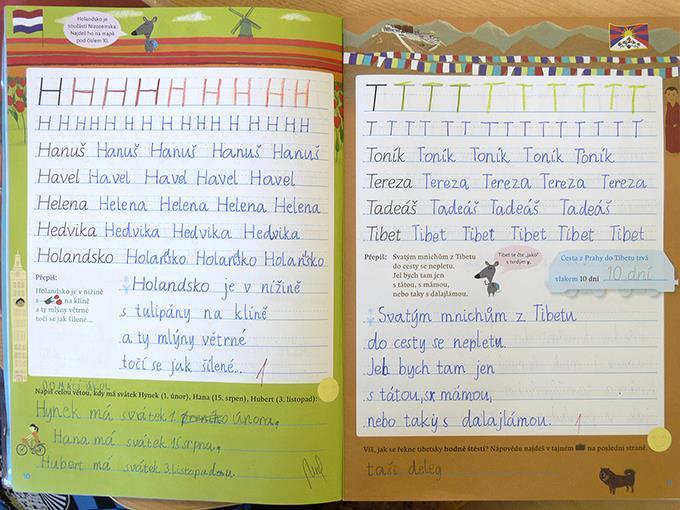 Holandsko je
součástí Nizozemska.
Najdeš ho na mapě
pod číslem 10.
H H H H H H H H H H
H H H H H H H H H H H H H H
Hanuš Hanuš Hanuš Hanuš Hanuš
Havel Havel Havel Havel Havel
Helena Helena Helena Helena Helena
Hedvika Hedvika Hedvika Hedvika
Holandsko Holandsko Holandsko Holandsko
Přepiš:
Holandsko je v nížině
s na klíně
a ty mlýny větrné
točí se jak šílené...
Holandsko je v nížině
s tulipány na klíně
a ty mlýny větrné
točí se jak šílené... 1
DOMÁCÍ ÚKOL
Napiš celou větou, kdy má svátek Hynek (1. únor), Hana (15. srpen), Hubert (3. listopad):
Hynek má svátek 1. února.
Hana má svátek 15. srpna.
Hubert má svátek 3. listopadu.
10
T T T T T T T T T T
T T T T T T T T T T T T T T
Toník Toník Toník Toník Toník
Tereza Tereza Tereza Tereza Tereza
Tadeáš Tadeáš Tadeáš Tadeáš
Tibet Tibet Tibet Tibet Tibet Tibet
Přepiš:
Svatým mnichům z Tibetu
do cesty se nepletu.
Jel bych tam jen
s tátou, s mámou,
nebo taky s dalajlámou.
Tibet se čte „jako"
s tvrdým y.
Cesta z Prahy do Tibetu trvá
vlakem 10 dní 10 dní
Svatým mnichům z Tibetu
do cesty se nepletu.
Jel bych tam jen
s tátou, s mámou,
nebo taky s dalajlámou. 1
Víš, jak se řekne tibetsky hodně štěstí? Nápovědu najdeš v tajném na poslední straně.
taši deleg